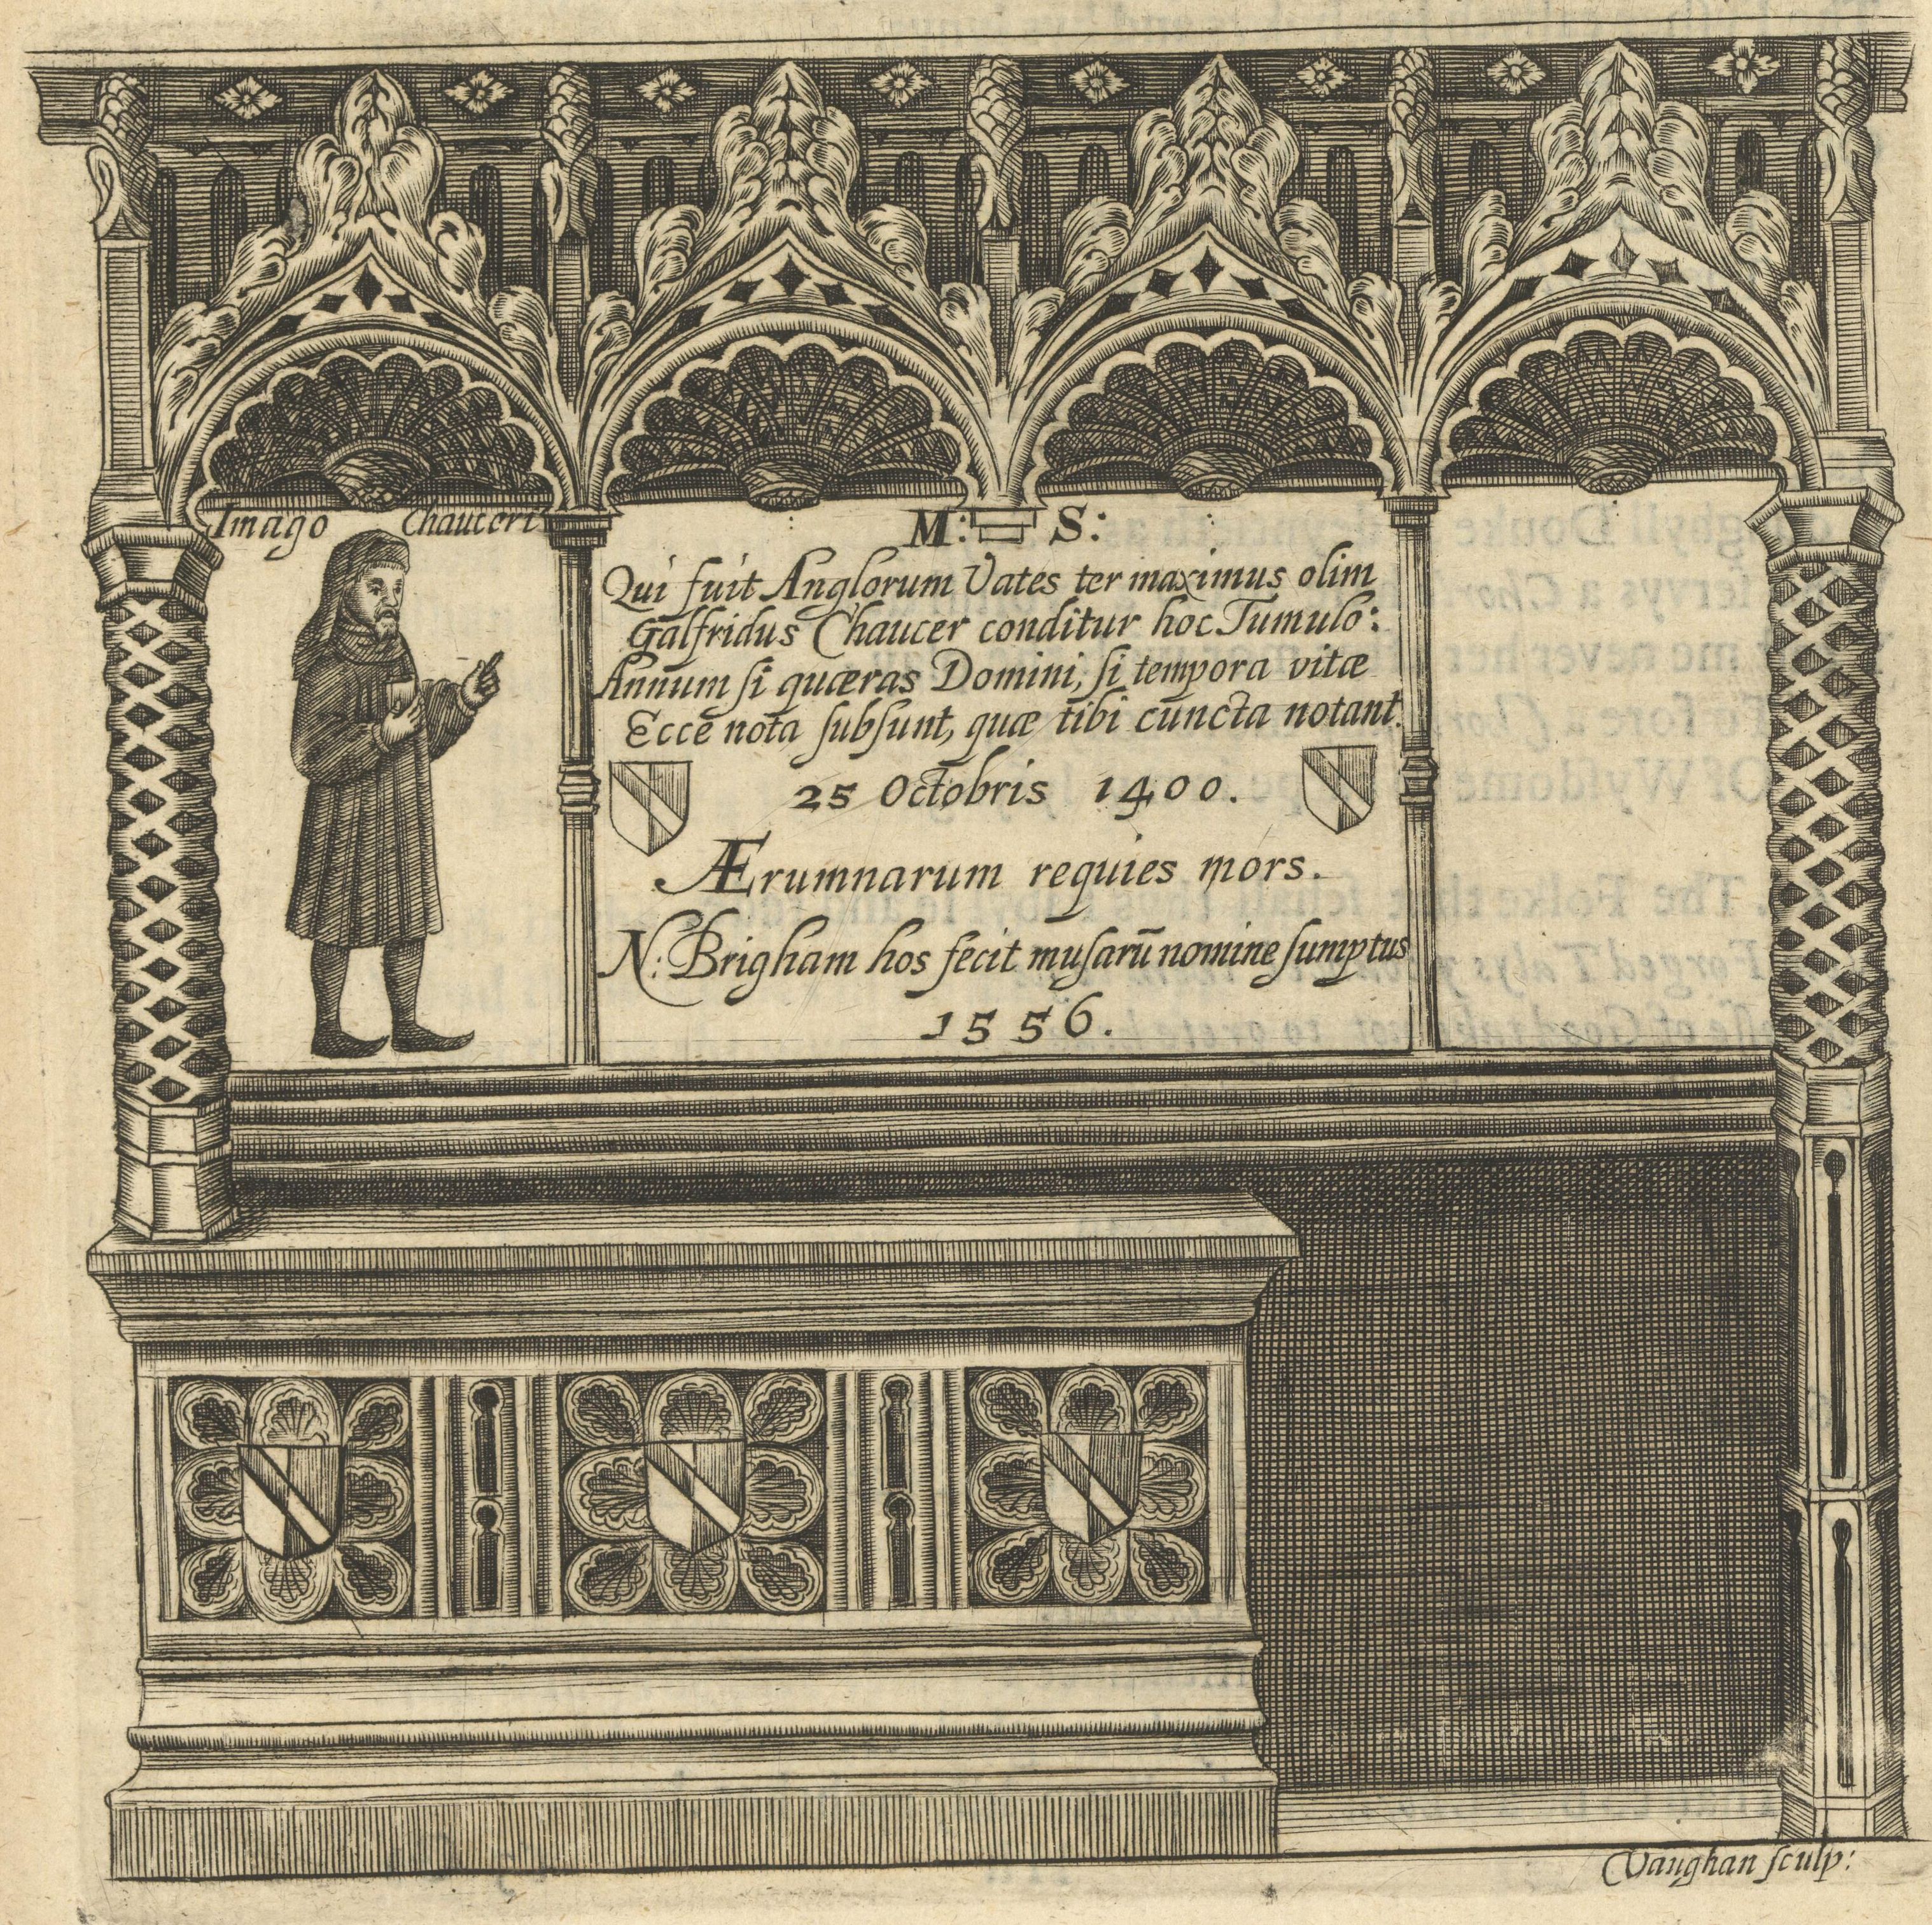 Imago Chauceri
M: S:
Qui fuit Anglorum Vates ter maximus olim
Galfridus Chaucer conditur hoc Tumulo:
Annum si quæras Domini, si tempora vitæ
Ecce nota subsunt, quæ tibi cuncta notant.
25 Octobris 1400.
Ærumnarum requies mors.
N: Brigham hos fecit musarū nomine sumptus
1556.
Vaughan sculp: